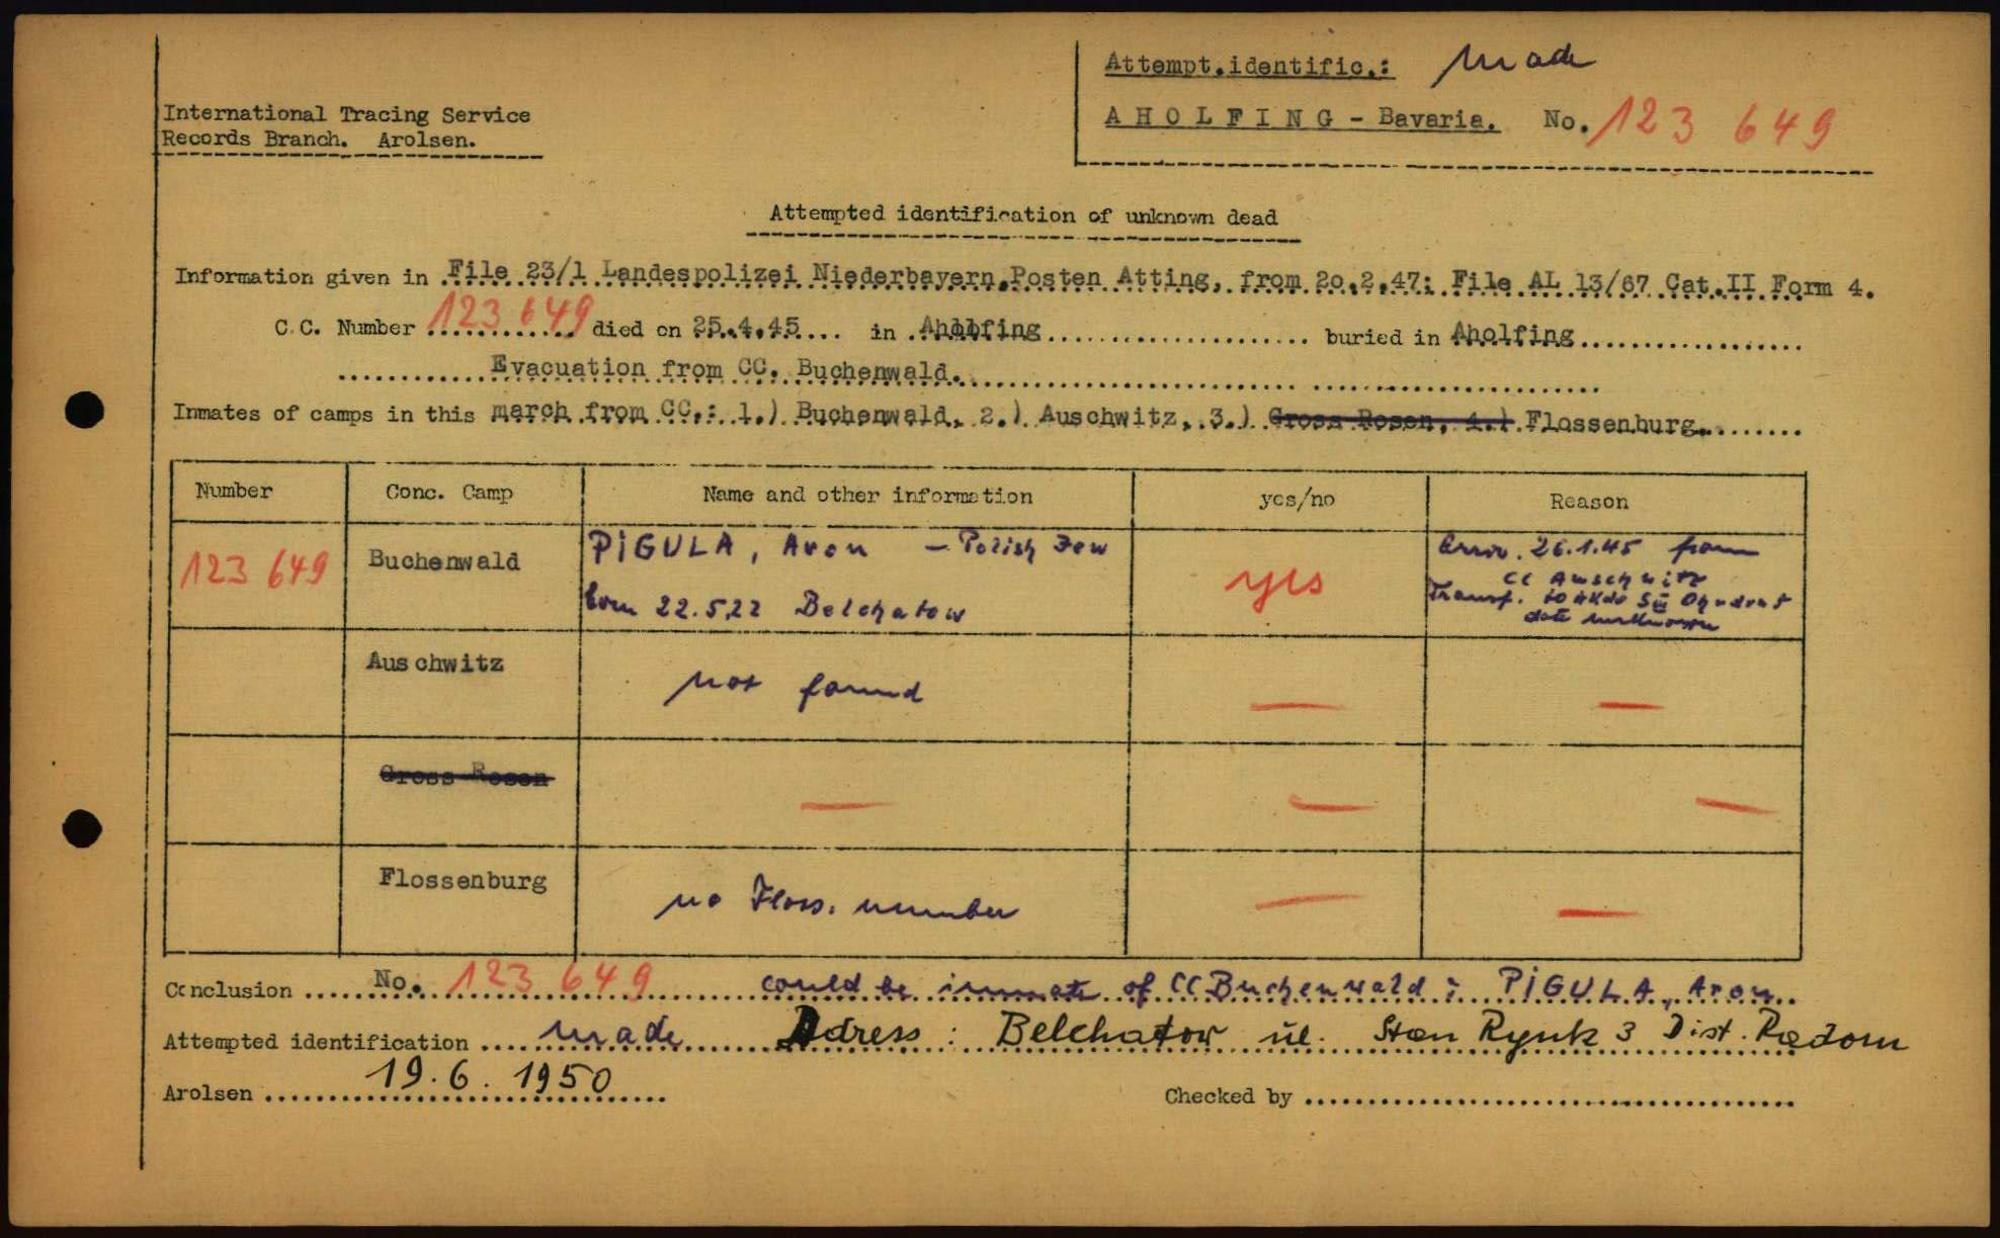 Attempt.identific.: made
International Tracing Service
Records Branch. Arolsen.
AHOLFING - Bavaria. No. 123 649
Attempted identification of unknown dead
Information given in File 23/1 Landespolizei Niederbayern, Posten Atting, from 20.2.47; File AL 13/67 Cat.II Form 4.
C.C. Number 123 649 died on 25.4.45 in Aholfing buried in Aholfing
Evacuation from CC. Buchenwald.
Inmates of camps in this march from CC.: 1.) Buchenwald, 2.) Auschwitz, 3.) Gross Rosen, 4.) Flossenburg.
Number Conc. Camp Name and other information yes/no Reason
123 649 Buchenwald PIGULA, Aron - Polish Jew yes Arriv. 26.1.45 from
born 22.5.22 Belchatow CC Auschwitz
Transf. to AKdo SIII Ohrdruf
date unknown
Auschwitz not found — —
Gross Rosen — — —
Flossenburg no Floss. number — —
Conclusion No. 123 649 could be inmate of CC Buchenwald: PIGULA, Aron.
Attempted identification made Adress: Belchatow ul. Stan Rynk 3 Dist. Radom
Arolsen 19.6.1950 Checked by